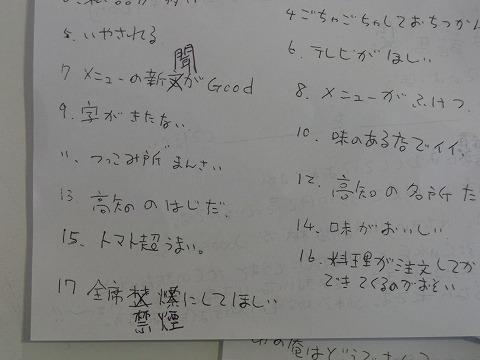 4 ごちゃごちゃしておちつかん
5. いやされる
6. テレビがほしい
7 メニューの新聞がGood
8. メニューがふけつ
9. 字がきたない
10. 味のある店でイイ。
11. つっこみ所まんさい
12. 高知の名所だ
13 高知のはじだ。
14. 味がおいしい
15. トマト超うまい。
16. 料理が注文してか
できてくるのがおそい
17 全席
禁煙
にしてほしい